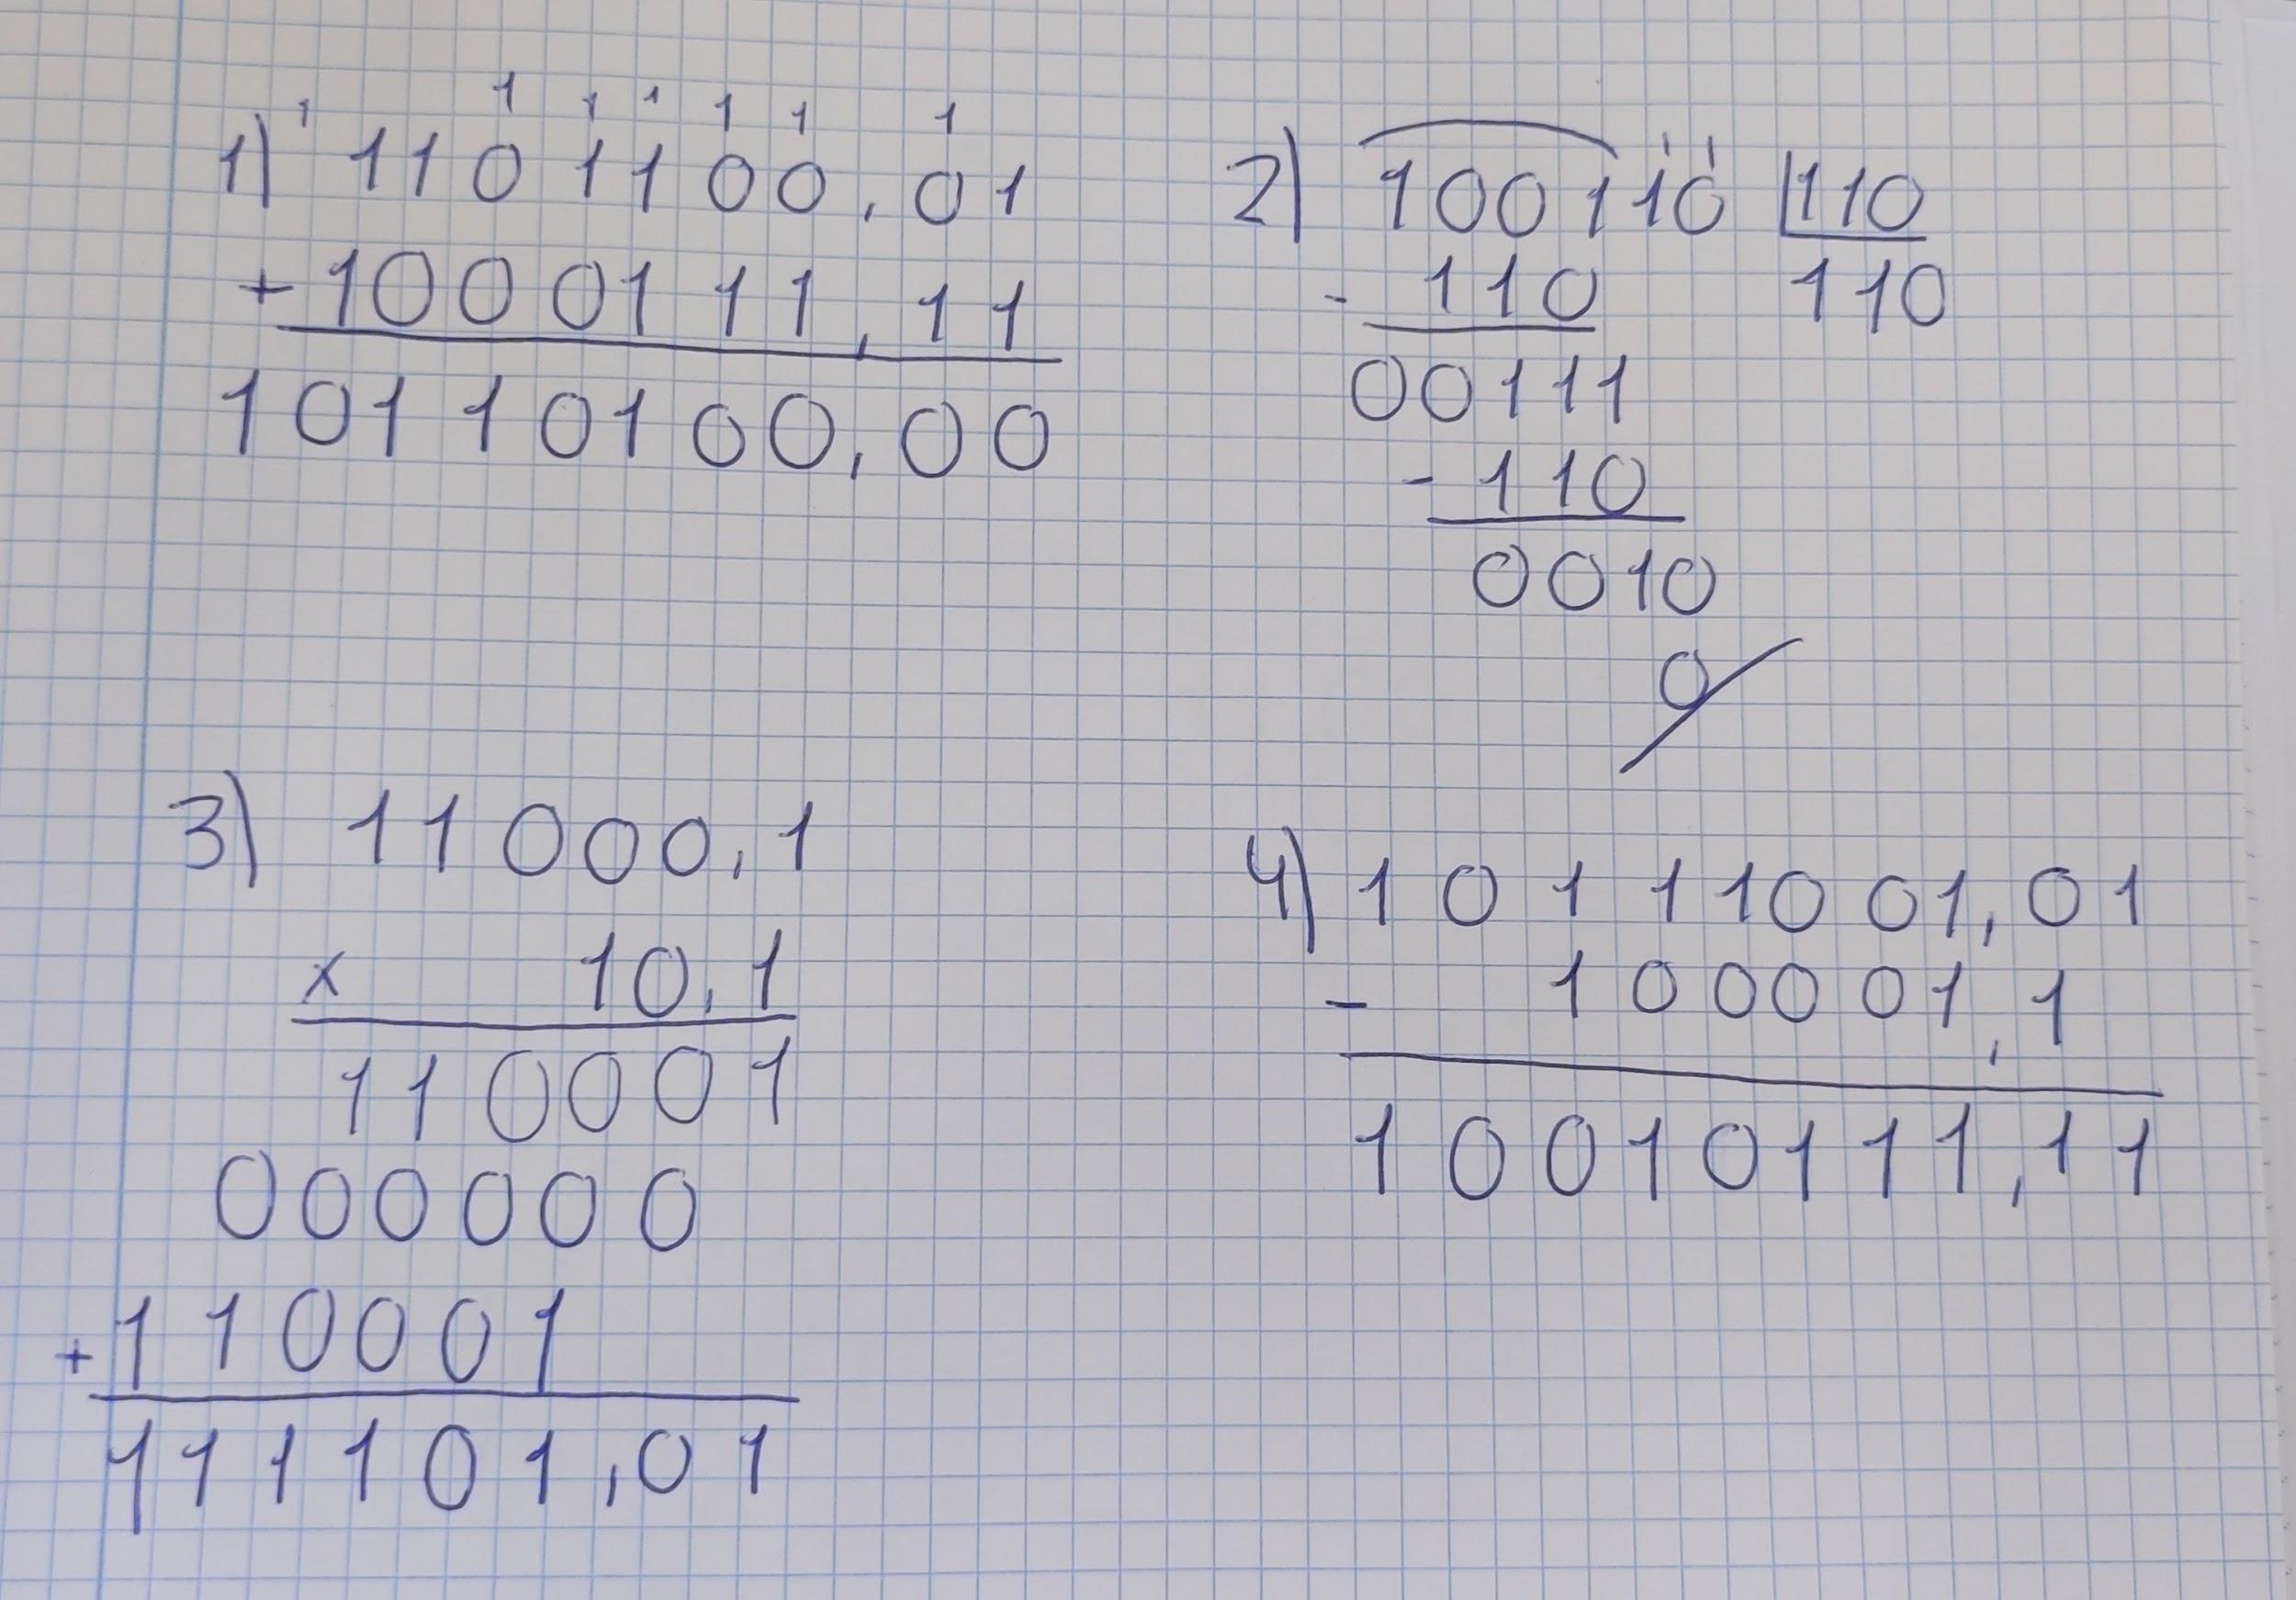 1 1 1 1 1 1 1
1) 1101100,01
+ 1000111,11
10110100,00
1 1
2) 100110 | 110
- 110 110
00111
- 110
0010
0
3) 11000,1
x 10,1
110001
000000
+ 110001
111101,01
4) 10111001,01
- 100001,1
10010111,11